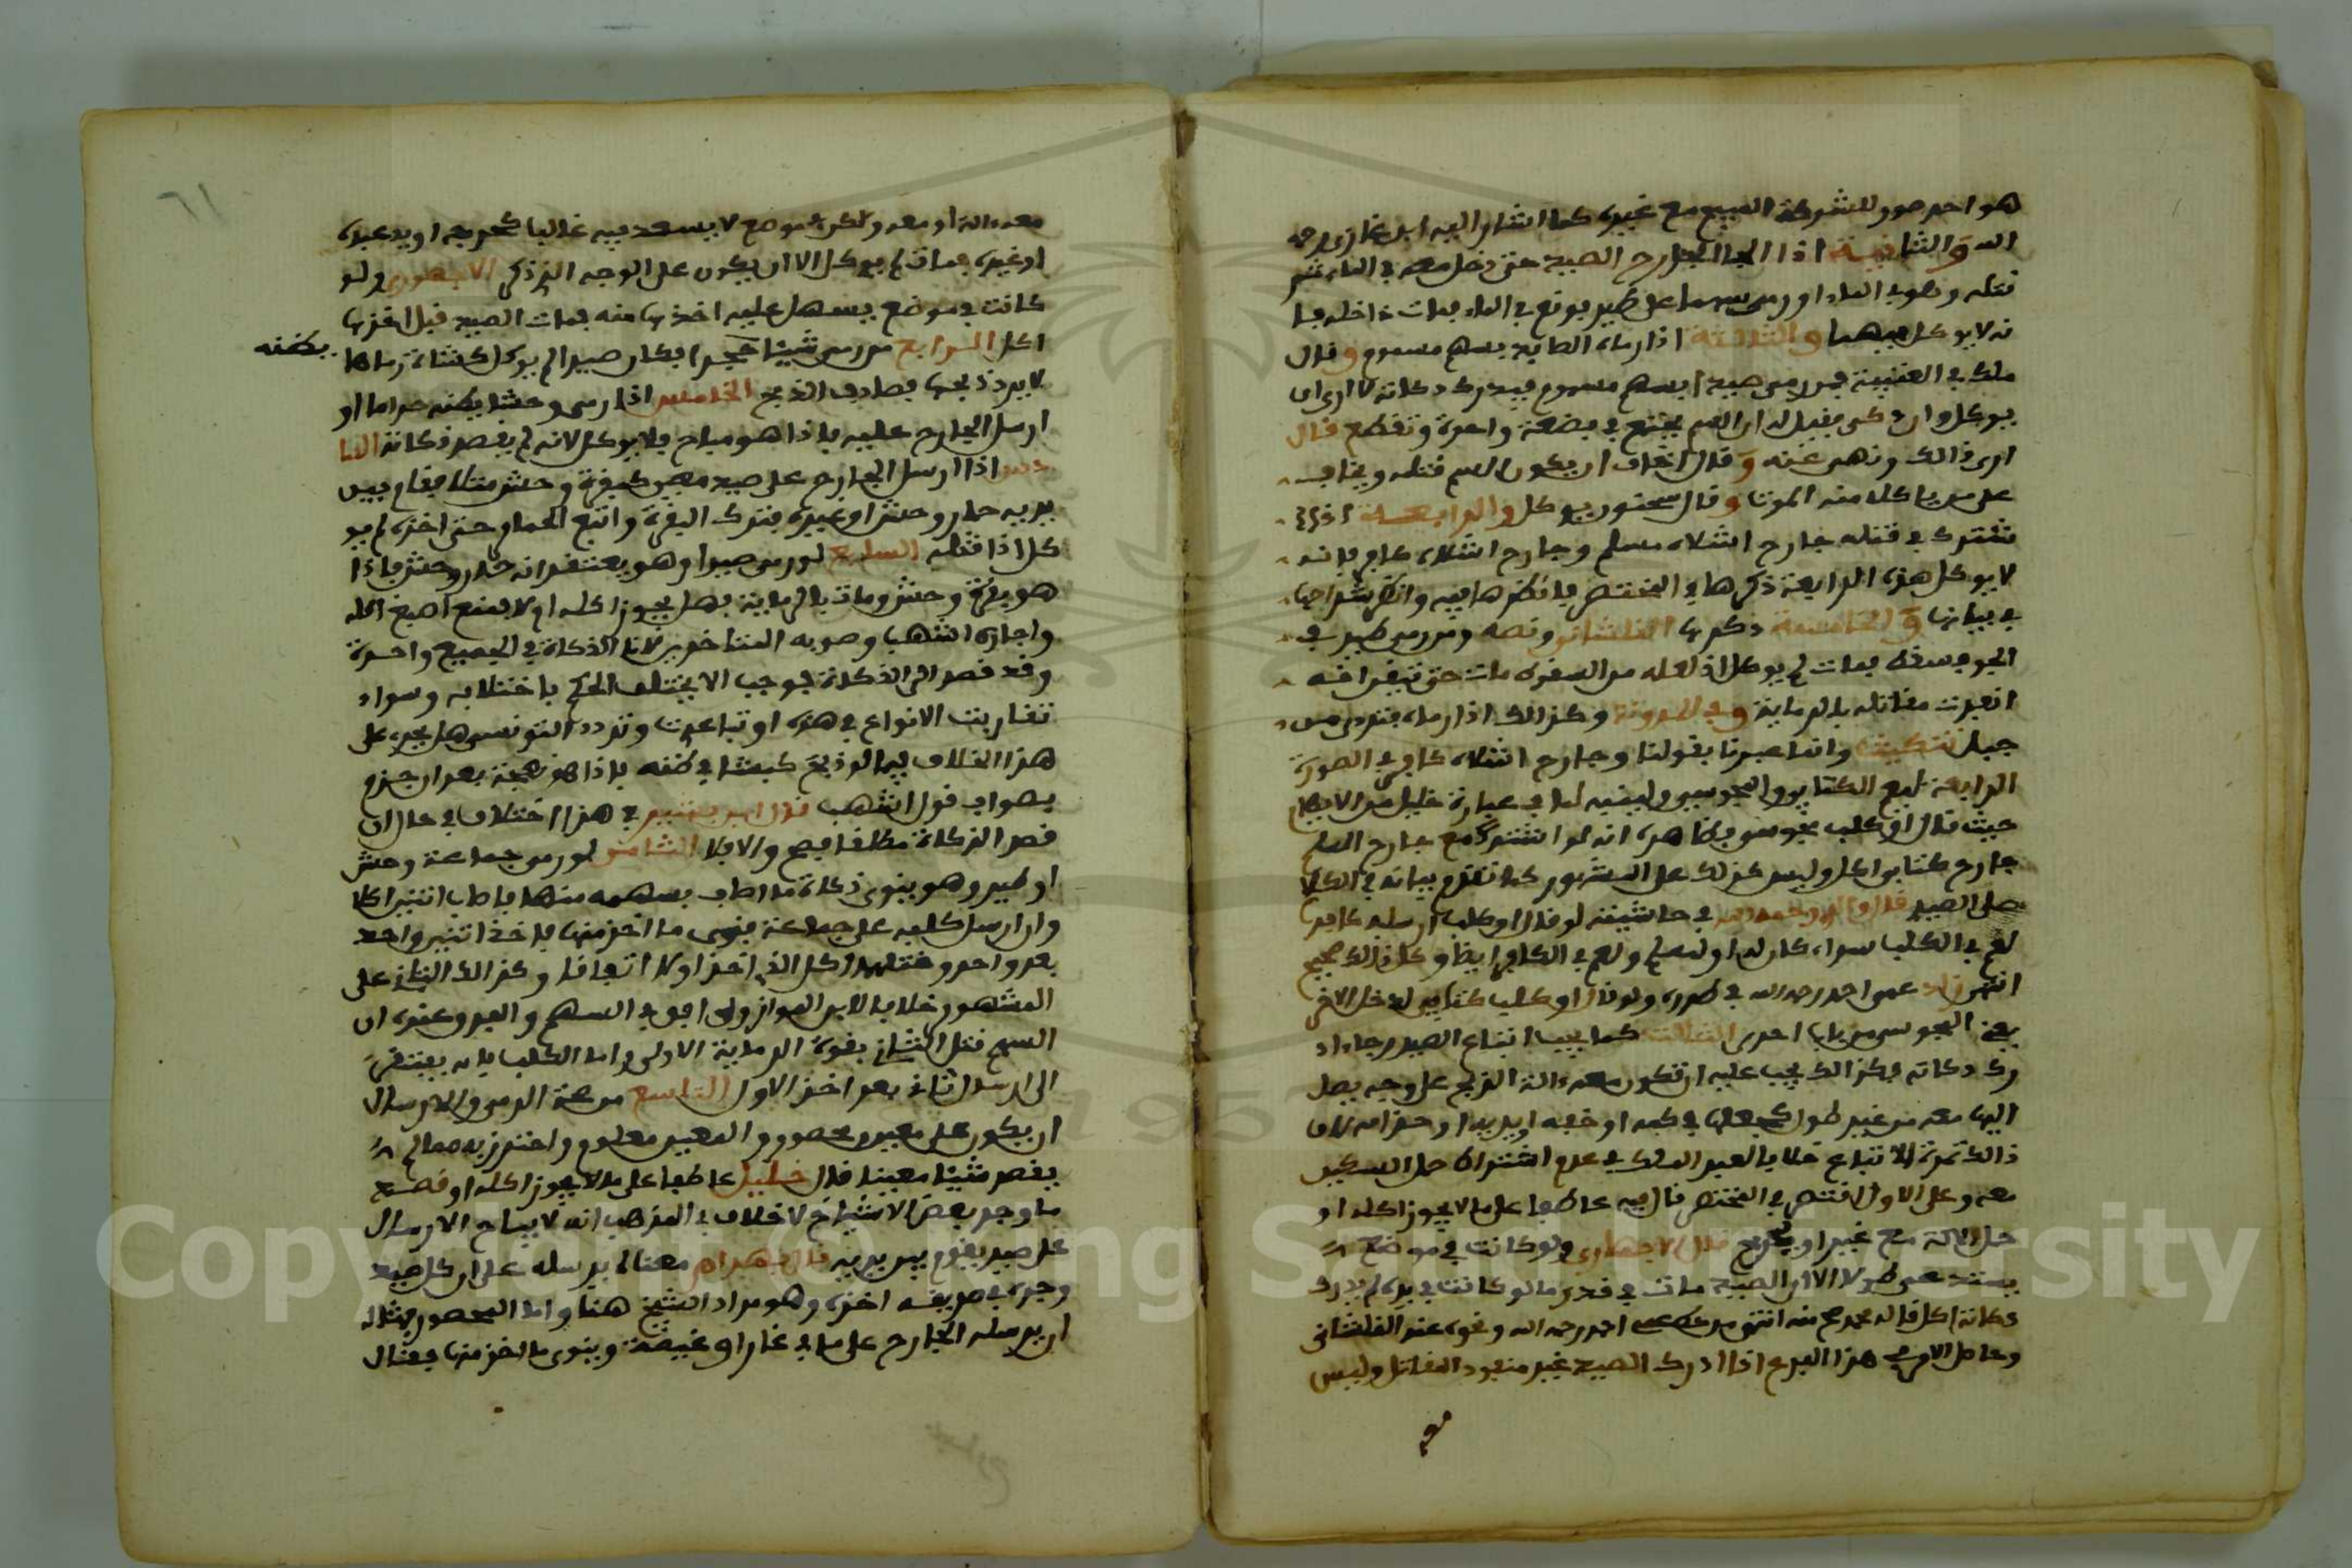 هو احد صور للشركة المبيح مع غيره كما اشار اليه ابن غازي رحمه
الله والثانية اذا الجا الجارح الصيد حتى دخل معه في الماء ثم
قتله وهو في الماء او رمى سهما على طير فوقع في الماء فمات داخله فا
نه لا يوكل فيهما والثالثة اذا رماه الصايد بسهم مسموم وقال
ملك في العتبية فيمن رمى صيدا بسهم مسموم فيدرك دكاته لا ارى ان
يوكل وان ذكى فقيل له ان السم يجتمع في بضعة واحدة وتقطع قال
ارى ذالك ونهى عنه وقال اخاف ان يكون السم قتله ويخاف
على من ياكله منه الموت وقال سحنون يوكل والرابعة اذا
شترك في قتله جارح اشلاه مسلم وجارح اشلاه كافر فانه
لا يوكل هذه الرابعة ذكرها في المختصر فانظرها فيه وانظر شراحها
في بيانها والخامسة ذكرها القلشاني ونصه ومن رمى طير في
الجو فسقط فمات لم يوكل اذ لعله من السقوط مات حتى تيقن انه
انفذت مقاتله بالرماية وفي المدونة وكذالك اذا رماه فتردى من
جبل تنكيت وانما عبرنا بقولنا وجارح اشلاه كافر في الصورة
الرابعة ليعم الكتابي والمجوسي ولينبه لما في عبارة خليل من الايهام
حيث قال او كلب مجوسي فظاهره انه لو اشترك مع جارح المسلم
جارح كتابي اكل وليس كذلك على المشهور كما تقدم بيانه في الكلام
على الصيد قال والد رحمه الله في حاشيته لو قال او كلب ارسله كافر
لعم في الكلب سواء كان له او لمسلم ولعم في الكافر ايضا وكل ذالك صحيح
انتهى زاد عمى احمد رحمه الله في طرره ولو قال او كلب كتابي لدخل الاخر
يعني المجوسي من باب احرى الثالث كما يجب اتباع الصيد رجاء اد
رك دكاته فكذالك يجب عليه ان تكون معه ءالة الذبح على وجه يصل
اليها معه من غير طول كجعلها في كمه او خفه او يده او حزامه لان
ذالك ثمرة الاتباع خلافا لعبد الملك في عدم اشتراط حمل السكين
معه وعلى الاول اقتصر في المختصر فال فيه عاطفا على ما لا يجوز اكله او
حمل الالة مع غير او بخرج قال الاجهوري ولو كانت في موضع
يستدعي طولا الا ان الصيد مات في قدر ما لو كانت في يده لم يدرك
دكاته اكل قاله محمد صح منه انتهى من خط عمى احمد رحمه الله ونحوه عند القلشاني
وحاصل الامر في هذا الفرع اذا ادرك الصيد غير منفوذ المقاتل وليس
معه
٦١
معه ءالة او معه ولكن في موضع لا يسعد فيه غالبا كخرجه او بيد عبده
او غيره فمات لم يوكل الا ان يكون على الوجه الذي ذكر الاجهوري ولو
كانت في موضع يسهل عليه اخذها منه فمات الصيد قبل اخذها
اكل الرابع من رمى شيئا حجرا فكان صيدا لم يوكل كشاة رماها يظنه
لا يريد ذبحها فصادف الذبح الخامس اذا رمى وحشا يظنه حراما او
ارسل الجارح عليه فاذا هو مباح فلا يوكل لانه لم يقصد ذكاته السا
دس اذا ارسل الجارح على صيد معين كبقرة وحش مثلا فقام بين
يديه حمار وحش او غيره فترك البقرة واتبع الحمار حتى اخذه لم يو
كل اذا قتله السابع لو رمى صيدا وهو يعتقد انه حمار وحش فاذا
هو بقرة وحش ومات بالرماية فهل يجوز اكله او لا فمنع اصبغ اكله
واجازه اشهب وصوبه المتاخرين لان الذكاة في الجميع واحدة
وقد قصد الى الذكاة فوجب الا يختلف الحكم باختلافه وسواء
تقاربت الانواع في هذه او تباعدت وتردد التونسي هل يجرى على
هذا الخلاف فيما لو ذبح كبشا في ظنه فاذا هو نعجة بعد ان جزم
بصواب قول اشهب قال ابن بشير في هذا اختلاف في حال ان
قصد الذكاة مطلقا فيصح والا فلا الثامن لو رمى جماعة وحش
او طير وهو ينوي ذكاة ما اصاب بسهمه منها فاصاب اثنين اكلا
وان ارسل كلبه على جماعة ينوي ما اخذ منها فاخذ اثنين واحد
بعد واحد وقتلهما اكل الذي اخذ اولا اتفاقا وكذالك الثاني على
المشهور خلافا لابن المواز ولو افق في السهم والفرق عنده ان
السهم قتل الثاني بقوة الرماية الاولى واما الكلب فانه يفتقر
الى ارسال ثان بعد اخذ الاول التاسع من صحة الرمي والارسال
ان يكون على معين محصور والمعين معلوم واحترز به مما لم
يقصد شيئا معينا قال خليل عاطفا على ما لا يجوز اكله او قصد
ما وجد بعض الاشياخ لا خلاف في المذهب انه لا يباح الارسال
على صيد يقوم بين يديه قال بهرام معناه يرسله على ان كل صيد
وجده في طريقه اخذه وهو مراد الشيخ هنا واما المحصور فمثاله
ان يرسله الجارح على ما في غار او غيضة وينوي ما اخذ منها فقال